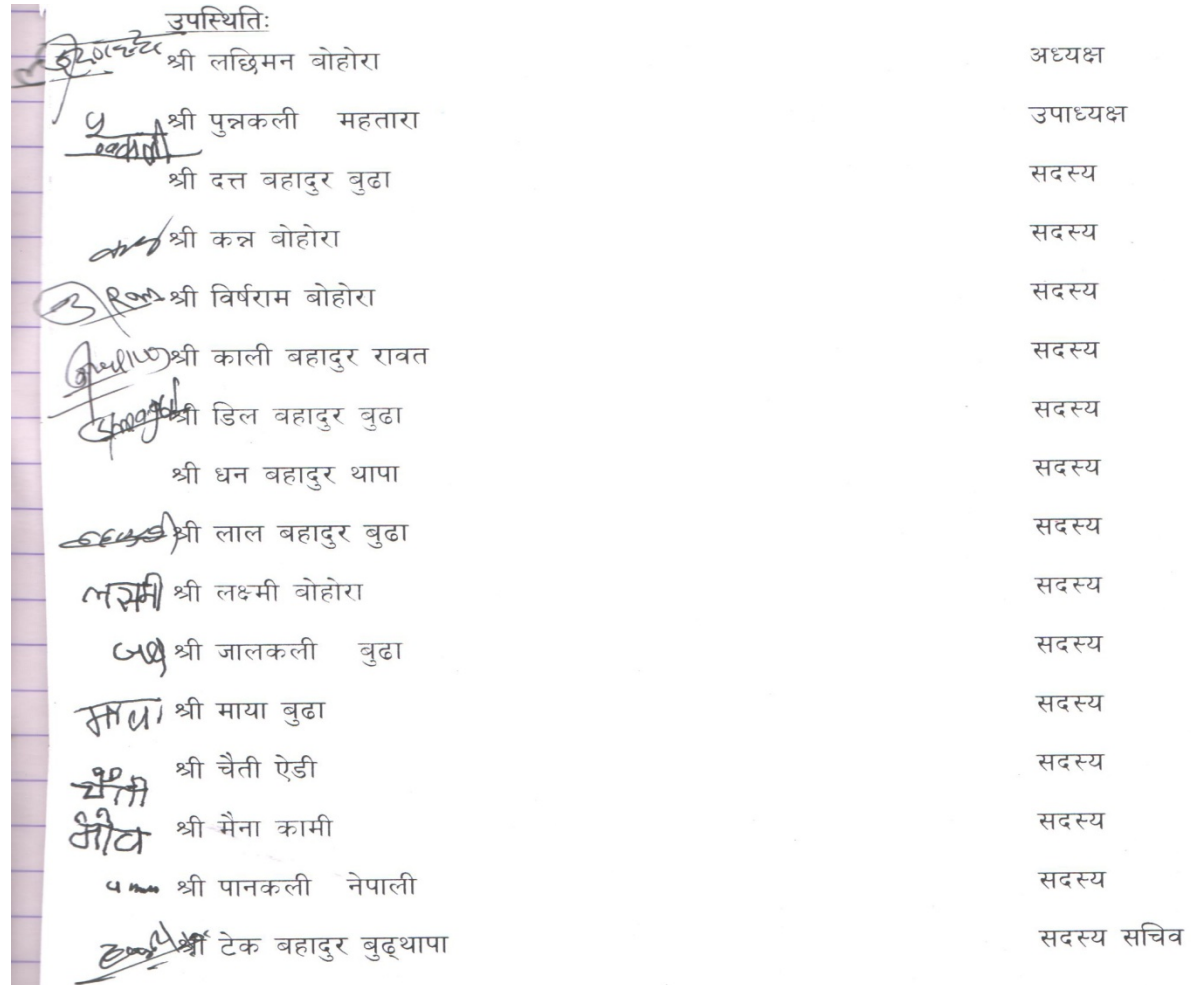 उपस्थितिः
श्री लछिमन बोहोरा अध्यक्ष
श्री पुन्नकली महतारा उपाध्यक्ष
श्री दत्त वहादुर बुढा सदस्य
श्री कन्न बोहोरा सदस्य
Ram श्री विर्षराम बोहोरा सदस्य
श्री काली बहादुर रावत सदस्य
श्री डिल बहादुर बुढा सदस्य
श्री धन बहादुर थापा सदस्य
श्री लाल बहादुर बुढा सदस्य
लसमी श्री लक्ष्मी बोहोरा सदस्य
श्री जालकली बुढा सदस्य
माया श्री माया बुढा सदस्य
चैती श्री चैती ऐडी सदस्य
श्री मैना कामी सदस्य
श्री पानकली नेपाली सदस्य
श्री टेक बहादुर बुढ्थापा सदस्य सचिव